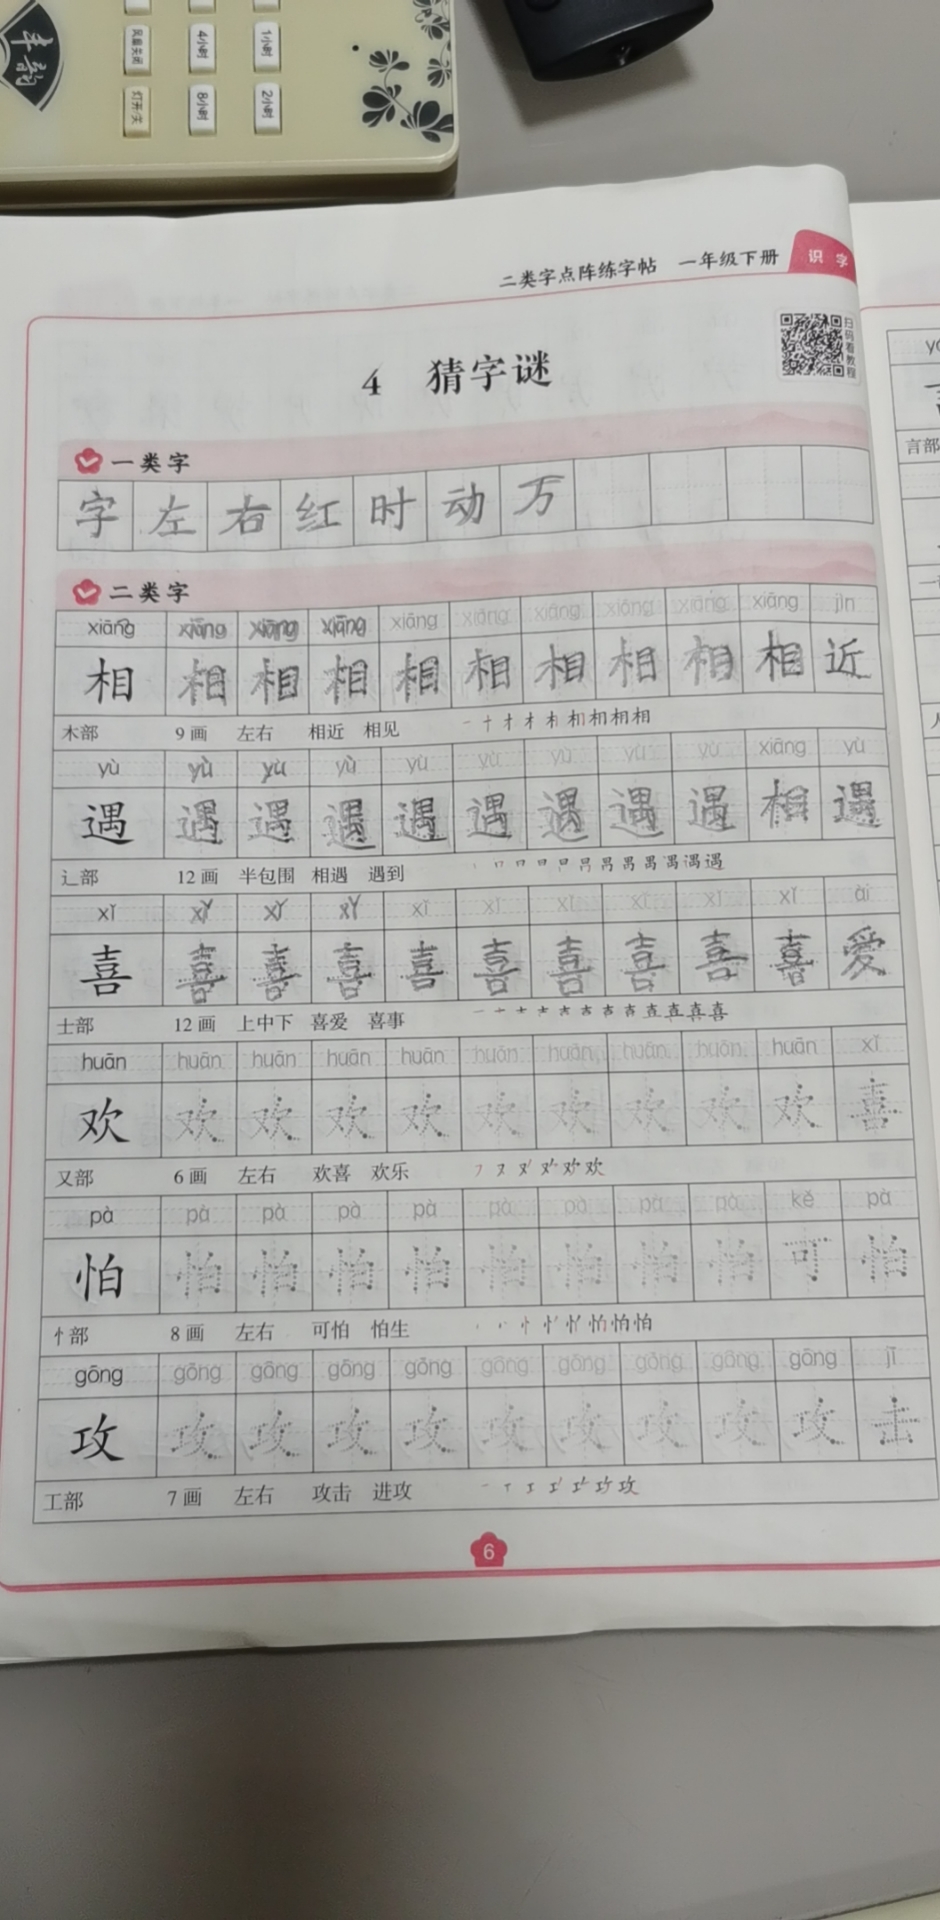 丰韵
风扇关闭 4小时 1小时
灯开/关 8小时 2小时
二类字点阵练字帖 一年级下册 识字
扫码看教程
4 猜字谜
一类字
字 左 右 红 时 动 万
二类字
xiāng xiāng xiāng xiāng xiāng xiāng xiāng xiāng xiāng xiāng jìn
相 相 相 相 相 相 相 相 相 相 近
木部 9画 左右 相近 相见
yù yù yù yù yù yù yù yù yù xiāng yù
遇 遇 遇 遇 遇 遇 遇 遇 遇 相 遇
辶部 12画 半包围 相遇 遇到
xǐ xǐ xǐ xǐ xǐ xǐ xǐ xǐ xǐ xǐ ài
喜 喜 喜 喜 喜 喜 喜 喜 喜 喜 爱
士部 12画 上中下 喜爱 喜事
huān huān huān huān huān huān huān huān huān huān xǐ
欢 欢 欢 欢 欢 欢 欢 欢 欢 欢 喜
又部 6画 左右 欢喜 欢乐
pà pà pà pà pà pà pà pà pà kě pà
怕 怕 怕 怕 怕 怕 怕 怕 怕 可 怕
忄部 8画 左右 可怕 怕生
gōng gōng gōng gōng gōng gōng gōng gōng gōng gōng jī
攻 攻 攻 攻 攻 攻 攻 攻 攻 攻 击
工部 7画 左右 攻击 进攻
6
言部